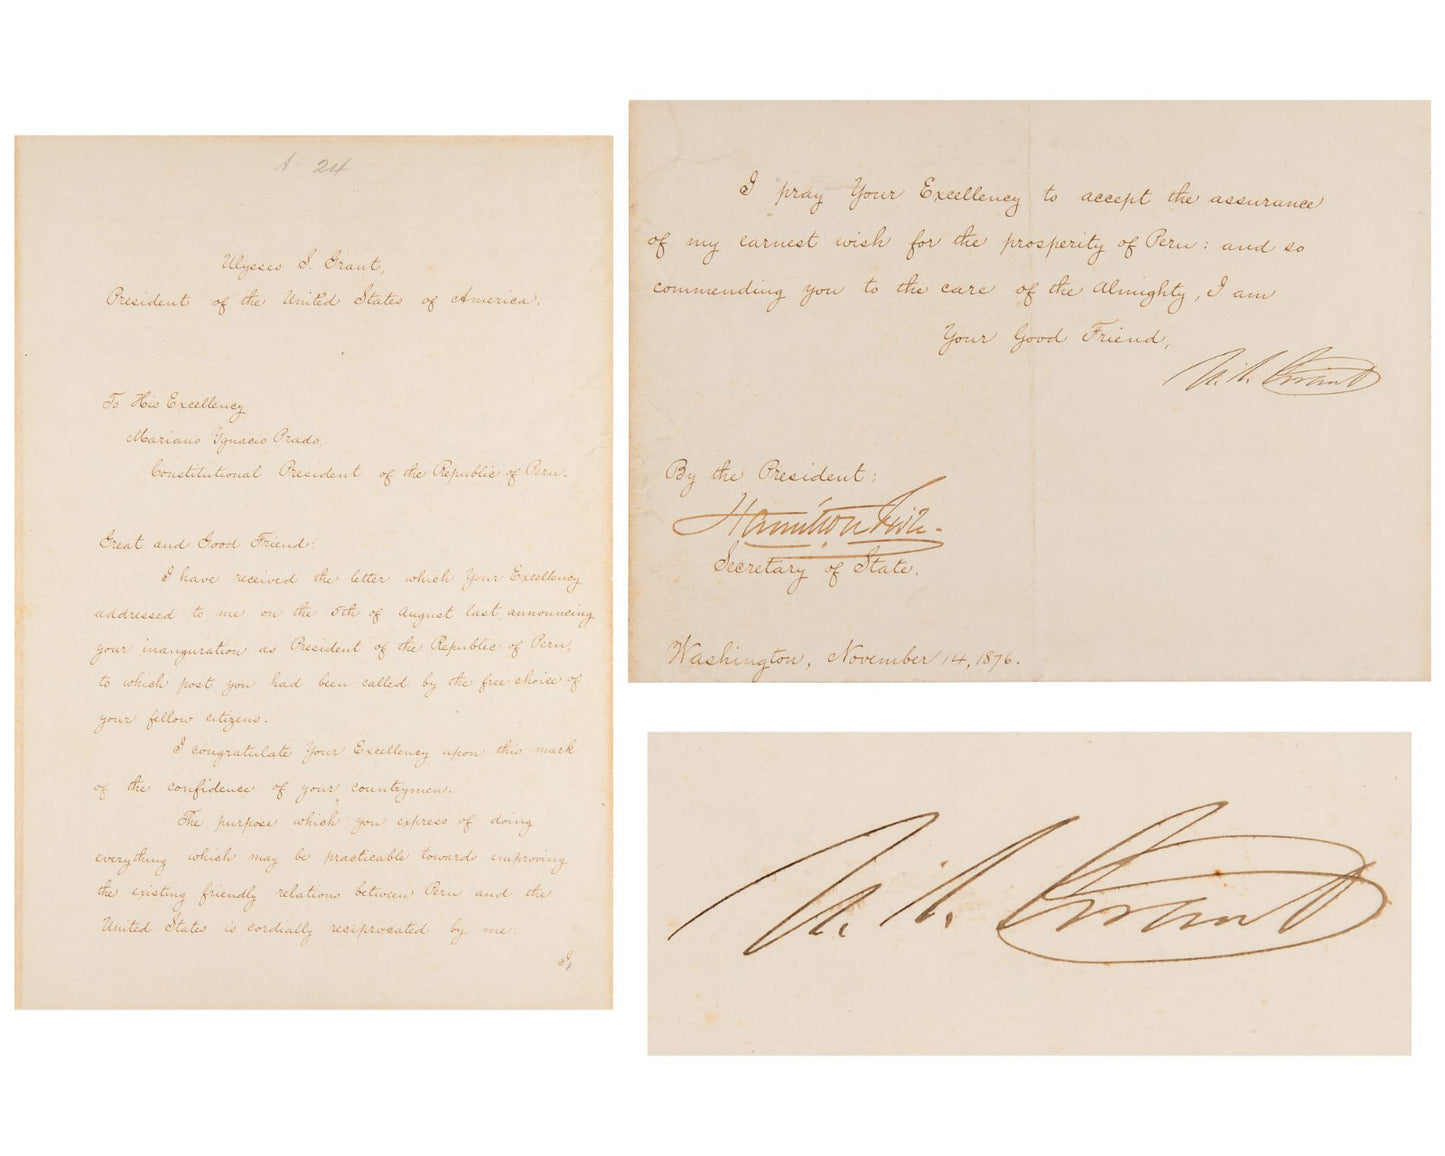 A 24
Ulysses S. Grant,
President of the United States of America.
To His Excellency
Mariano Ygnacio Prado,
Constitutional President of the Republic of Peru.
Great and Good Friend:
I have received the letter which Your Excellency
addressed to me on the 5th of August last, announcing
your inauguration as President of the Republic of Peru,
to which post you had been called by the free choice of
your fellow citizens.
I congratulate Your Excellency upon this mark
of the confidence of your countrymen.
The purpose which you express of doing
everything which may be practicable towards improving
the existing friendly relations between Peru and the
United States is cordially reciprocated by me.
I,
I pray Your Excellency to accept the assurance
of my earnest wish for the prosperity of Peru: and so
commending you to the care of the Almighty, I am
Your Good Friend,
U. S. Grant
By the President:
Hamilton Fish.
Secretary of State.
Washington, November 14, 1876.
U. S. Grant